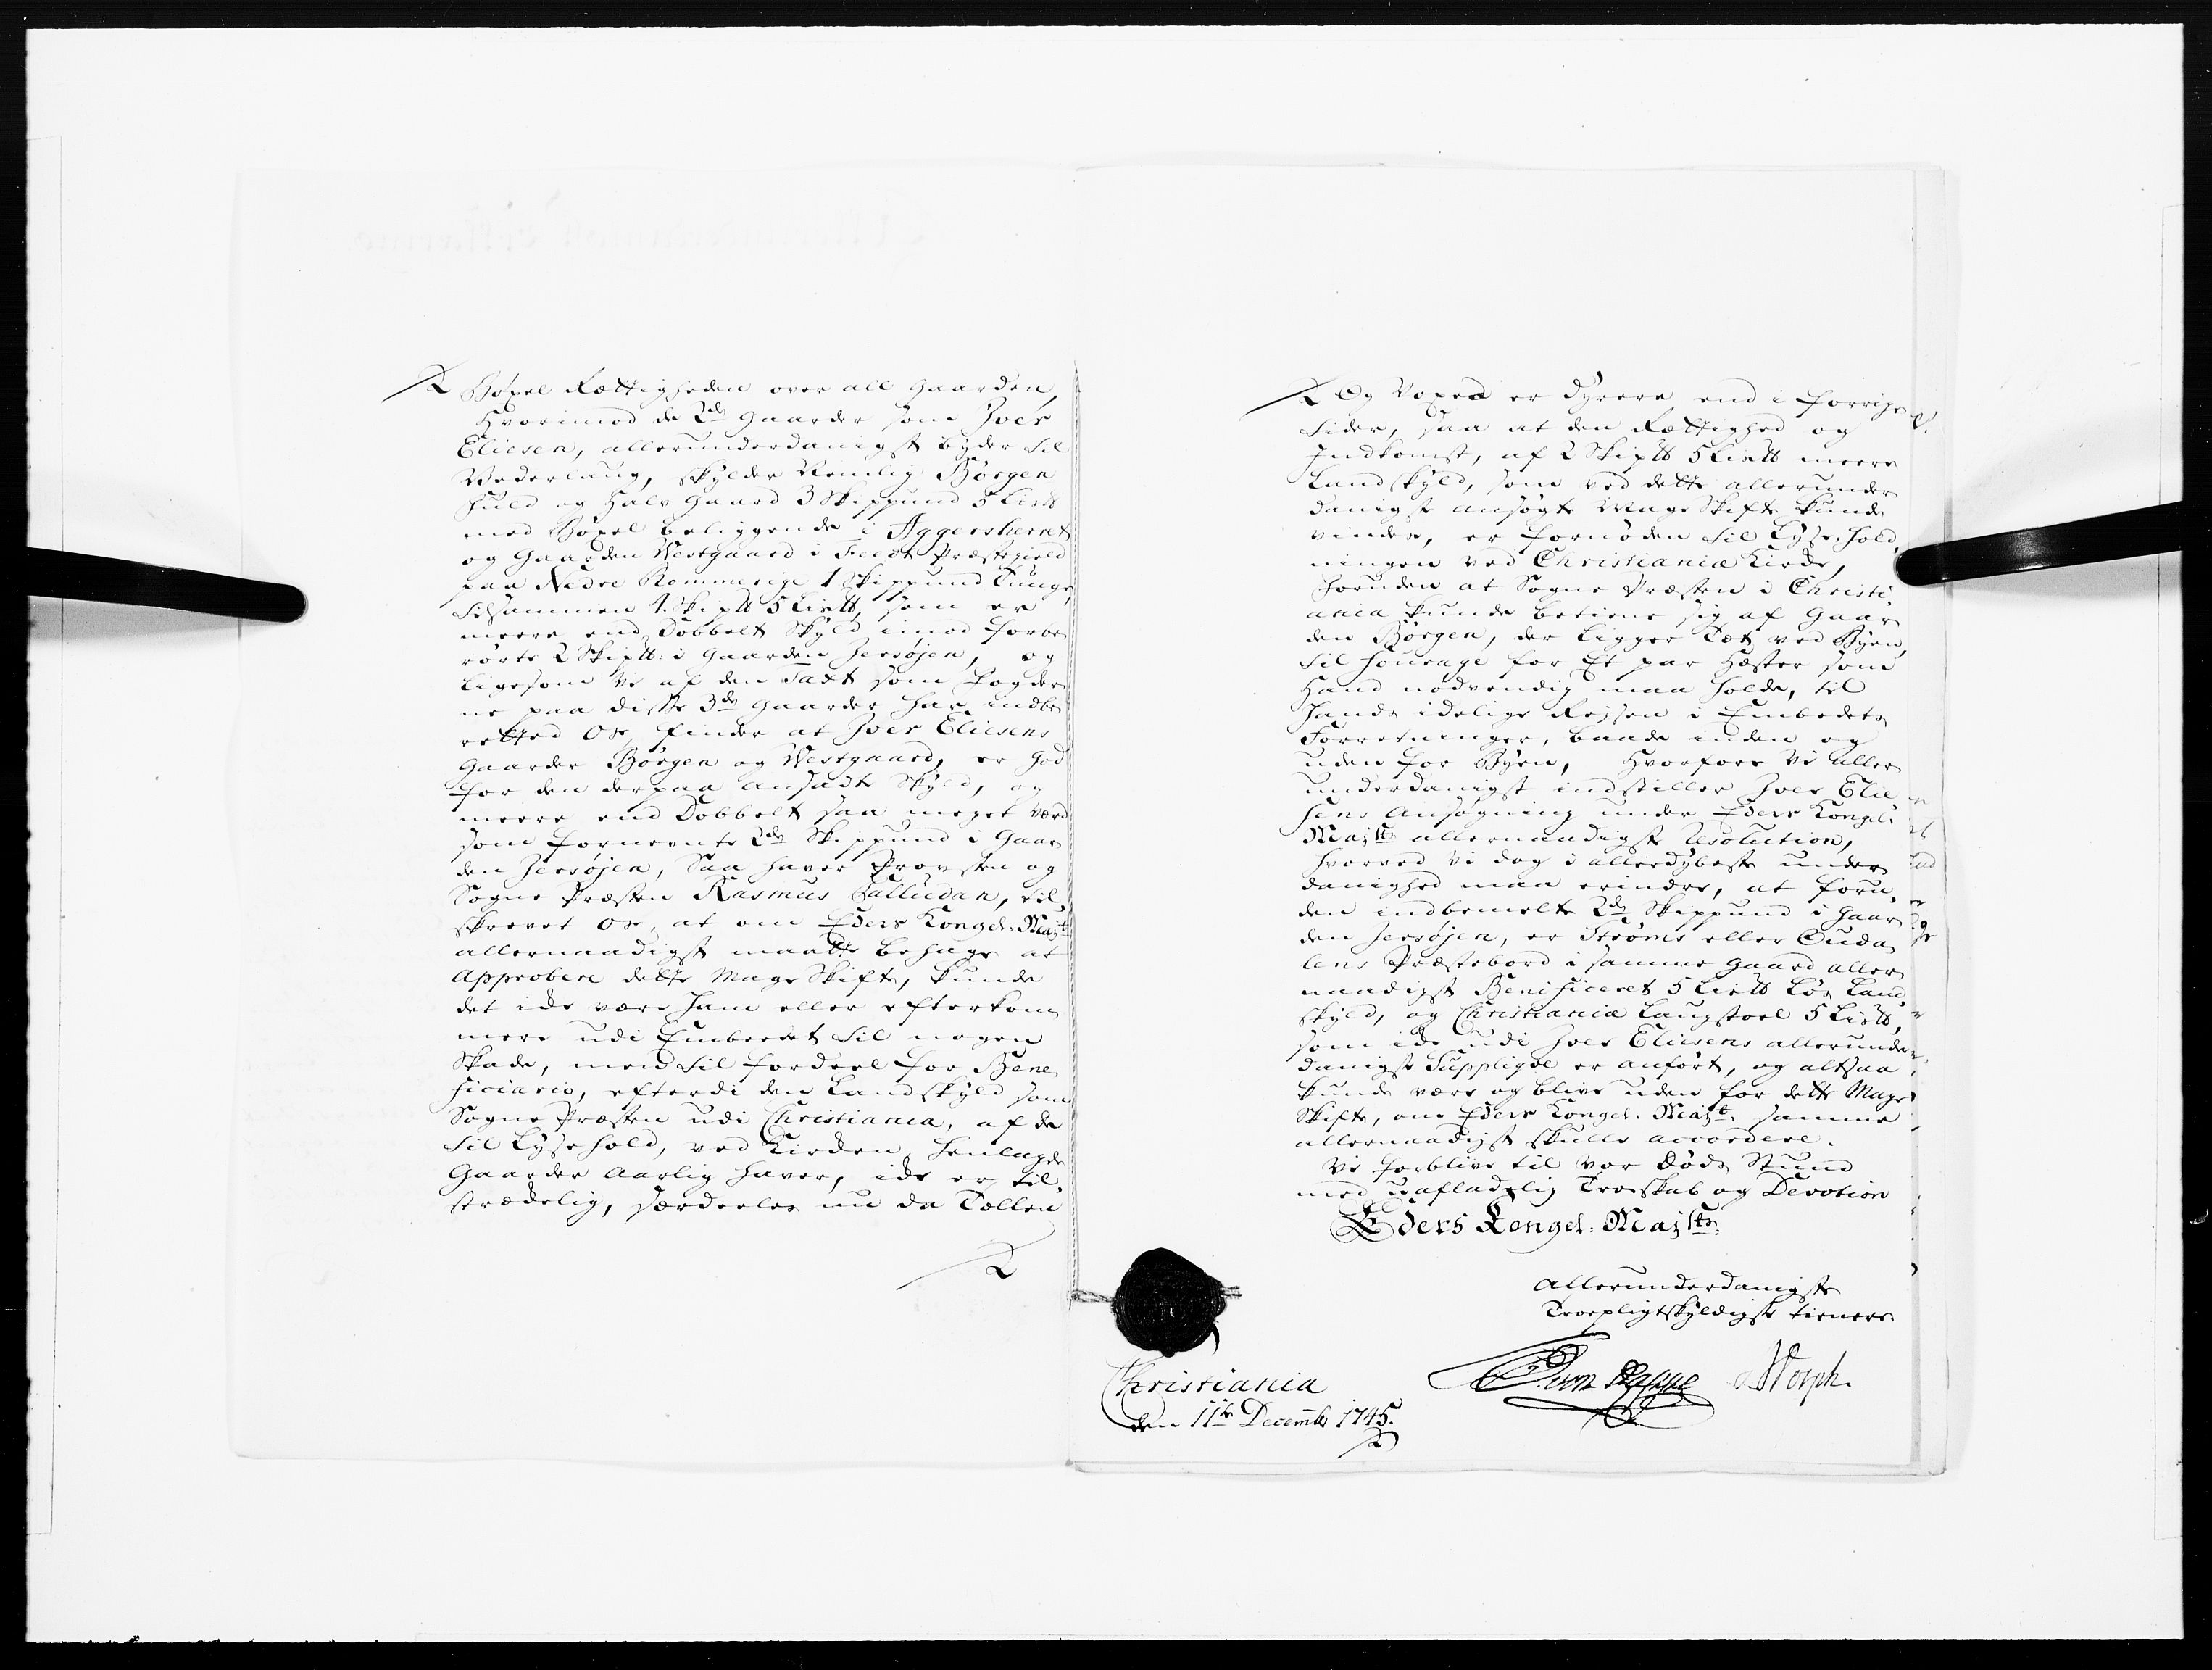 Böxel Rettigheden over all Gaarden,
Hvorimod de 2de Gaarder som Iver
Eliesen, allerunderdanigst byder til
Vederlaug, skylder Nemlig Börgen
fuld og Halv Gaard 3 Skippund 5 Lis℔
med Böxel beliggende i Aggersherret
og Gaarden Westgaard i Feed Præstegield
paa Nedre Rommerige 1 Skippund Tunge,
tilsammen 4 Skip℔ 5 Lis℔, som er
meere end Dobbelt Skyld imod forbe
rörte 2 Skip℔: i Gaarden Jersöjen, og
ligesom Vi af den Taxt som Fogder
ne paa disse 3de Gaarder har indbe
retted Os, finder at Iver Eliesens
Gaarder Börgen og Westgaard, er god
for den derpaa ansadte Skyld, og
meere end Dobbelt saa meget værd
som fornevnte 2de Skippund i Gaar
den Jersöjen, Saa haver Provsten og
Sogne Præsten Rasmus Palludan, til
skrevet Os, at om Eders Kongel. Mayt
allernaadigst maatte behage at
Approbere dette Mage Skifte, kunde
det icke være ham eller efterkom
mere udi Embedet til nogen
Skade, men til fordeel for Bene
ficiario, efterdi den Landskyld som
Sogne Præsten udi Christiania, af de
til Lysehold, ved Kirken henlagde
Gaarder Aarlig haver, icke er til
strædelig, særdeeles nu da Tallen
Og Voxed er dyrere end i forrige
tider, saa at den Rettighed og
Indkomst, af 2 Skip℔ 5 Lis℔ meere
Landskyld, som ved dette allerunder
danigst ansögte Mage Skifte kunde
vindes, er fornöden til Lyse-hold,
ningen ved Christiania Kircke,
foruden at Sogne Præsten i Christi
ania kunde betiene sig af Gaar
den Börgen, der ligger tæt ved Byen,
til Fourage for Et par Hæster som
Hand nödvendig maa holde, til
hands idelige Rejser i Embedets
Forretninger, baade inden og
uden for Byen, Hvorfore Vi aller
underdanigst indstiller Iver Elie
sens Ansögning under Eders Kongel:
Majsts allernaadigste Resolution,
hvorved Vi dog i allerdybeste under
danighed maa erindre, at foru
den indbemelte 2de Skippund i Gaar
den Jersöjen, er Ströms eller Ouda
lens Præstebord i samme Gaard aller
naadigst Benificeret 5 Lis℔ Lös Land
skyld, og Christiania Laugstoel 5 Lis℔,
som icke udi Iver Eliesens allerunder
danigste Suppliqve er anfört, og altsaa
kunde være og blive uden for dette Mage
Skifte, om Eders Kongel. Mayt. samme
allernaadigst skulle accordere.
Vi forblive til vor döds Stund
med uafladelig Troeskab og Devotion
Eders Kongel: Majsts
allerunderdanigste
Troepligtskyldigste tienere.
Christiania
den 11te Decembr 1745.
von Rappe Storph.